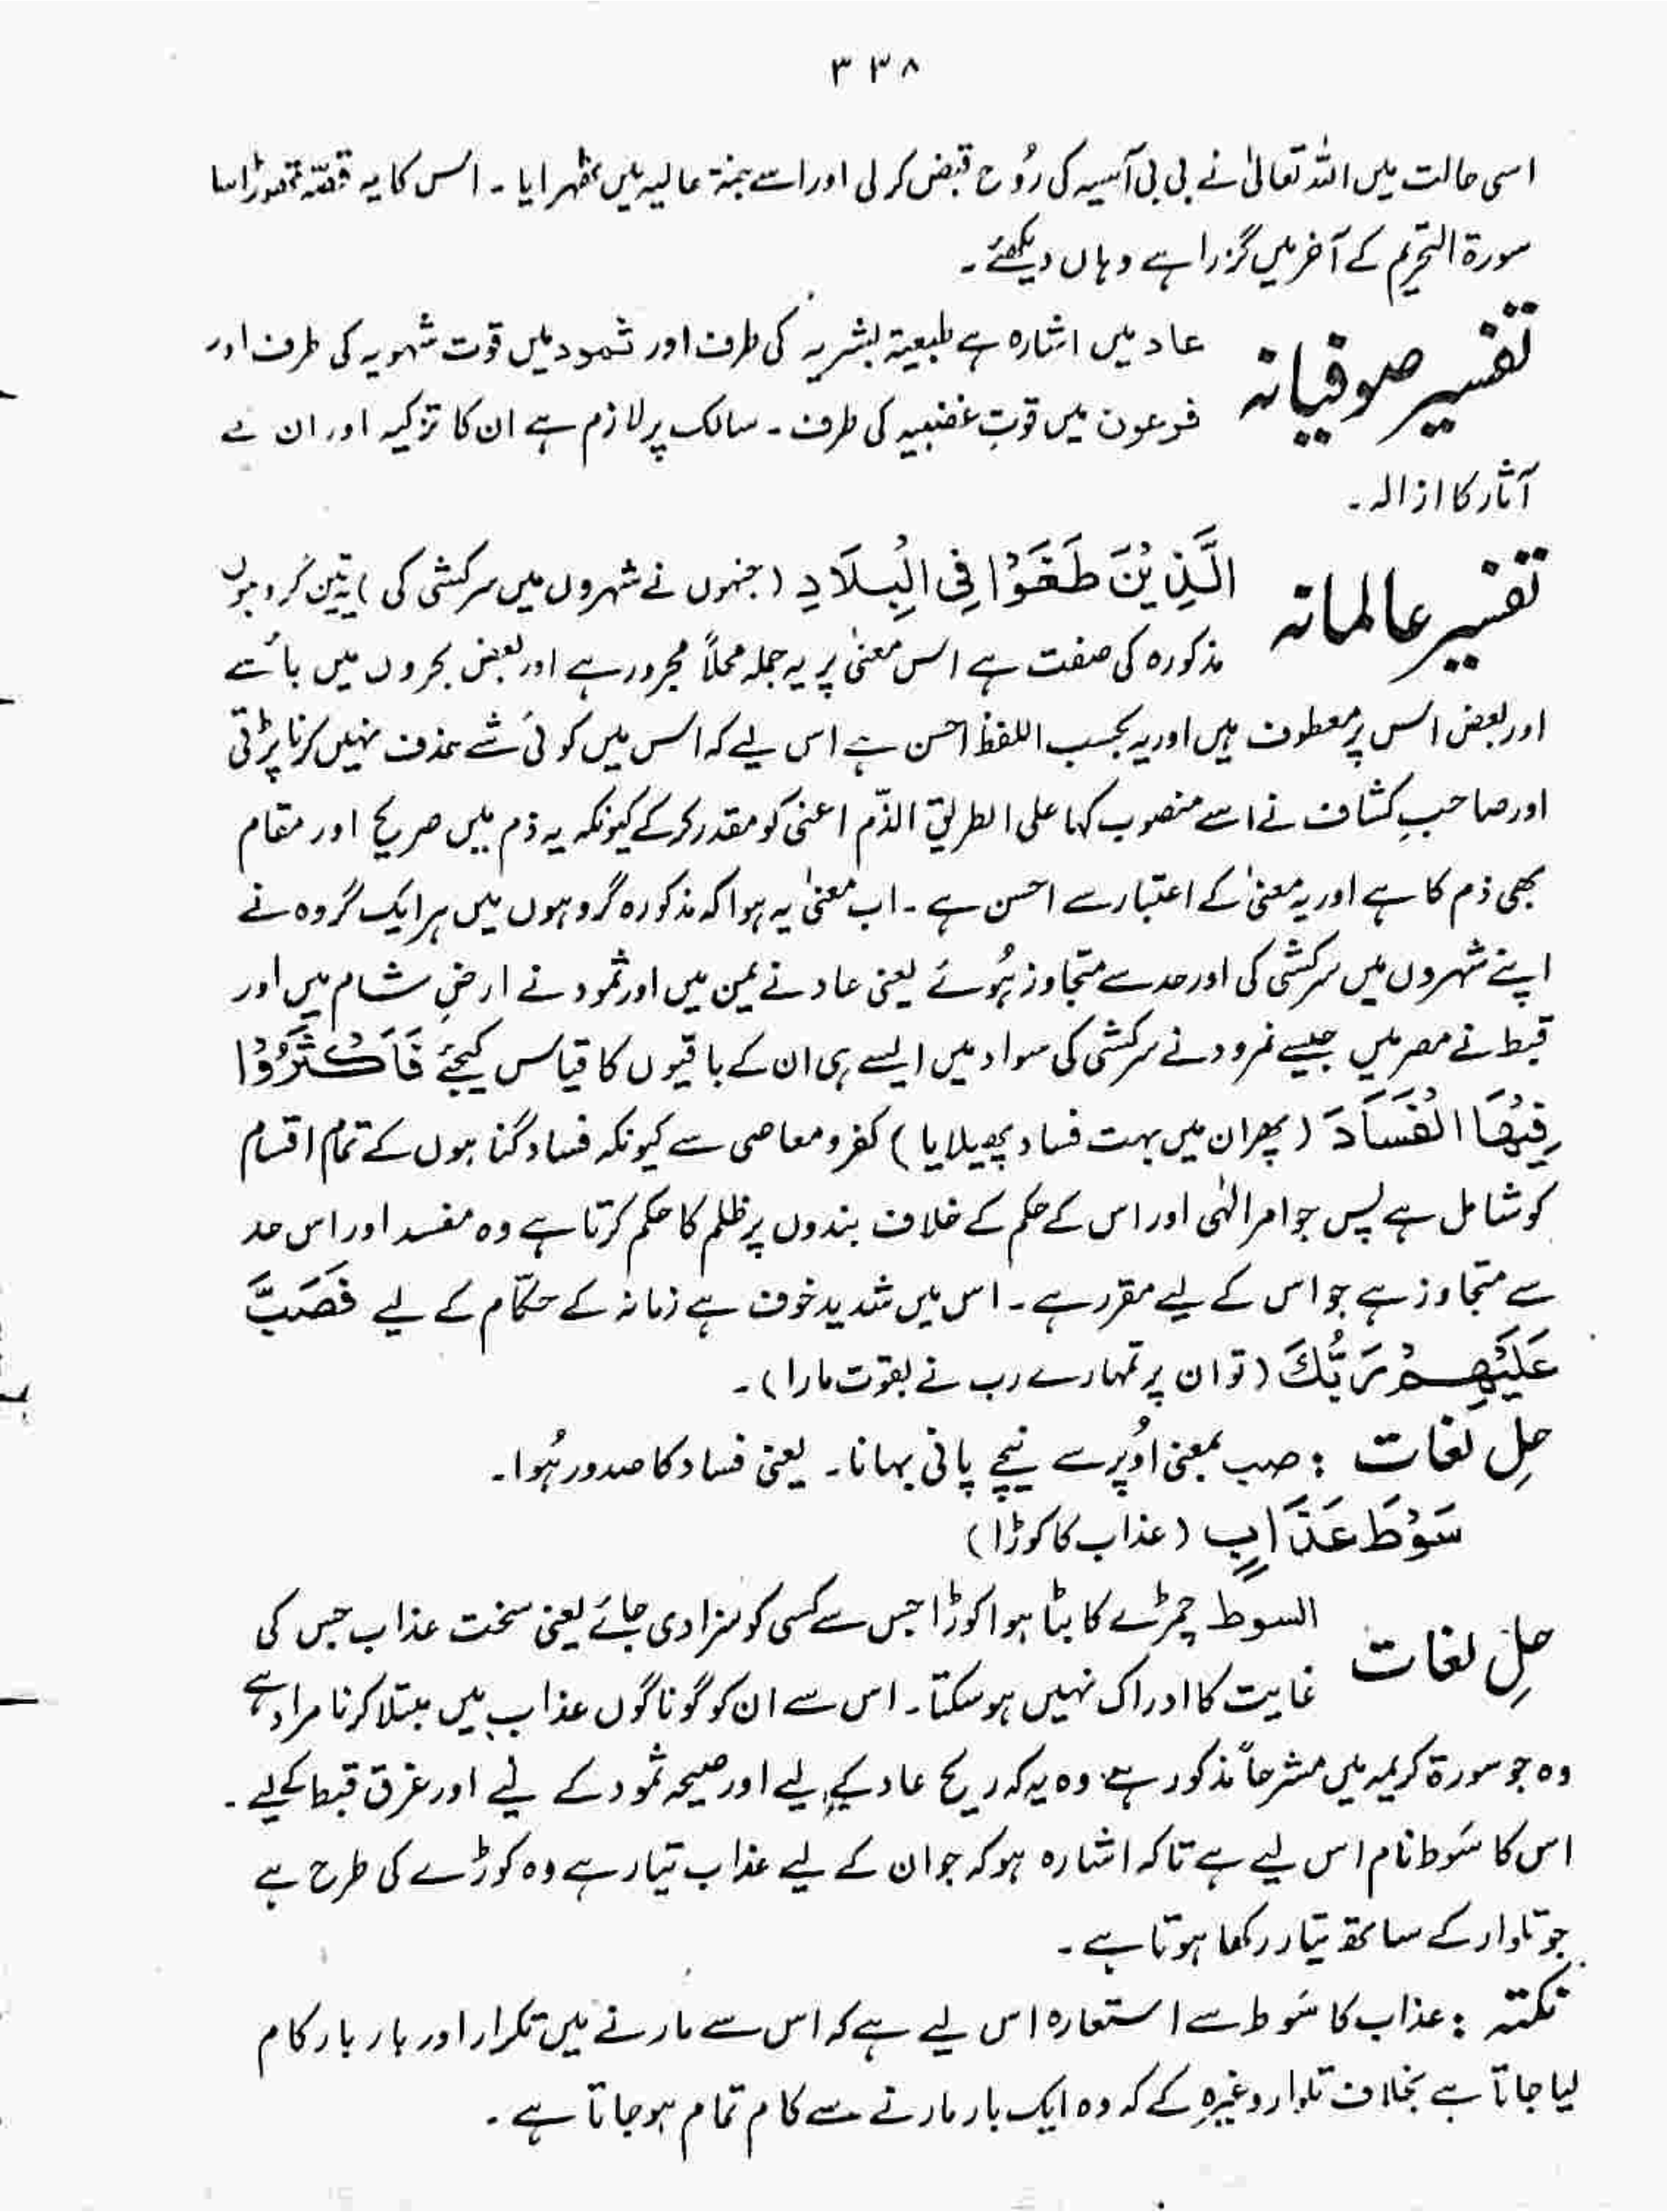 ۳۳۸
اسی حالت میں اللہ تعالیٰ نے بی بی آسیہ کی رُوح قبض کر لی اور اسے جنۃ عالیہ میں ٹھہرایا۔ اس کا یہ قصّہ تھوڑا سا
سورۃ التحریم کے آخر میں گزرا ہے وہاں دیکھئے۔
تفسیر صوفیانہ
عاد میں اشارہ ہے طبیعۃ بشریہ کی طرف اور ثمود میں قوت شہویہ کی طرف اور
فرعون میں قوتِ غضبیہ کی طرف۔ سالک پر لازم ہے ان کا تزکیہ اور ان کے
آثار کا ازالہ۔
تفسیر عالمانہ
الَّذِیْنَ طَغَوْا فِی الْبِلَادِ (جنہوں نے شہروں میں سرکشی کی) یہ تین گروہوں
مذکورہ کی صفت ہے اس معنیٰ پر یہ جملہ محلاً مجرور ہے اور بعض مجروں میں باسے
اور بعض اس پر معطوف ہیں اور یہ بحسب اللفظ احسن ہے اس لیے کہ اس میں کوئی شے حذف نہیں کرنا پڑتی
اور صاحبِ کشاف نے اسے منصوب کہا علی الطریق الذّم اعنی کو مقدر کر کے کیونکہ یہ ذم میں صریح اور مقام
بھی ذم کا ہے اور یہ معنیٰ کے اعتبار سے احسن ہے۔ اب معنیٰ یہ ہوا کہ مذکورہ گروہوں میں ہر ایک گروہ نے
اپنے شہروں میں سرکشی کی اور حد سے متجاوز ہُوئے یعنی عاد نے یمن میں اور ثمود نے ارضِ شام میں اور
قبط نے مصر میں جیسے نمرود نے سرکشی کی سواد میں ایسے ہی ان کے باقیوں کا قیاس کیجئے فَاَكْثَرُوْا
فِیْهَا الْفَسَادَ (پھر ان میں بہت فساد پھیلایا) کفر و معاصی سے کیونکہ فساد گناہوں کے تمام اقسام
کو شامل ہے پس جو امر الٰہی اور اس کے حکم کے خلاف بندوں پر ظلم کا حکم کرتا ہے وہ مفسد اور اس حد
سے متجاوز ہے جو اس کے لیے مقرر ہے۔ اس میں شدید خوف ہے زمانہ کے حکّام کے لیے فَصَبَّ
عَلَیْهِمْ رَبُّكَ (تو ان پر تمہارے رب نے بقوت مارا)۔
حلِ لغات : صب بمعنی اُوپر سے نیچے پانی بہانا۔ یعنی فساد کا صدور ہُوا۔
سَوْطَ عَذَابٍ (عذاب کا کوڑا)
حلِ لغات
السوط چمڑے کا بٹا ہوا کوڑا جس سے کسی کو سزا دی جائے یعنی سخت عذاب جس کی
غایت کا ادراک نہیں ہو سکتا۔ اس سے ان کو گوناگوں عذاب میں مبتلا کرنا مراد ہے
وہ جو سورۃ کریمہ میں مشرحاً مذکور ہے وہ یہ کہ ریح عاد کے لیے اور صیحہ ثمود کے لیے اور غرق قبط کے لیے۔
اس کا سَوط نام اس لیے ہے تاکہ اشارہ ہو کہ جو ان کے لیے عذاب تیار ہے وہ کوڑے کی طرح ہے
جو تلوار کے ساتھ تیار رکھا ہوتا ہے۔
نکتہ : عذاب کا سَوط سے استعارہ اس لیے ہے کہ اس سے مارنے میں تکرار اور بار بار کام
لیا جاتا ہے بخلاف تلوار وغیرہ کے کہ وہ ایک بار مارنے سے کام تمام ہو جاتا ہے۔